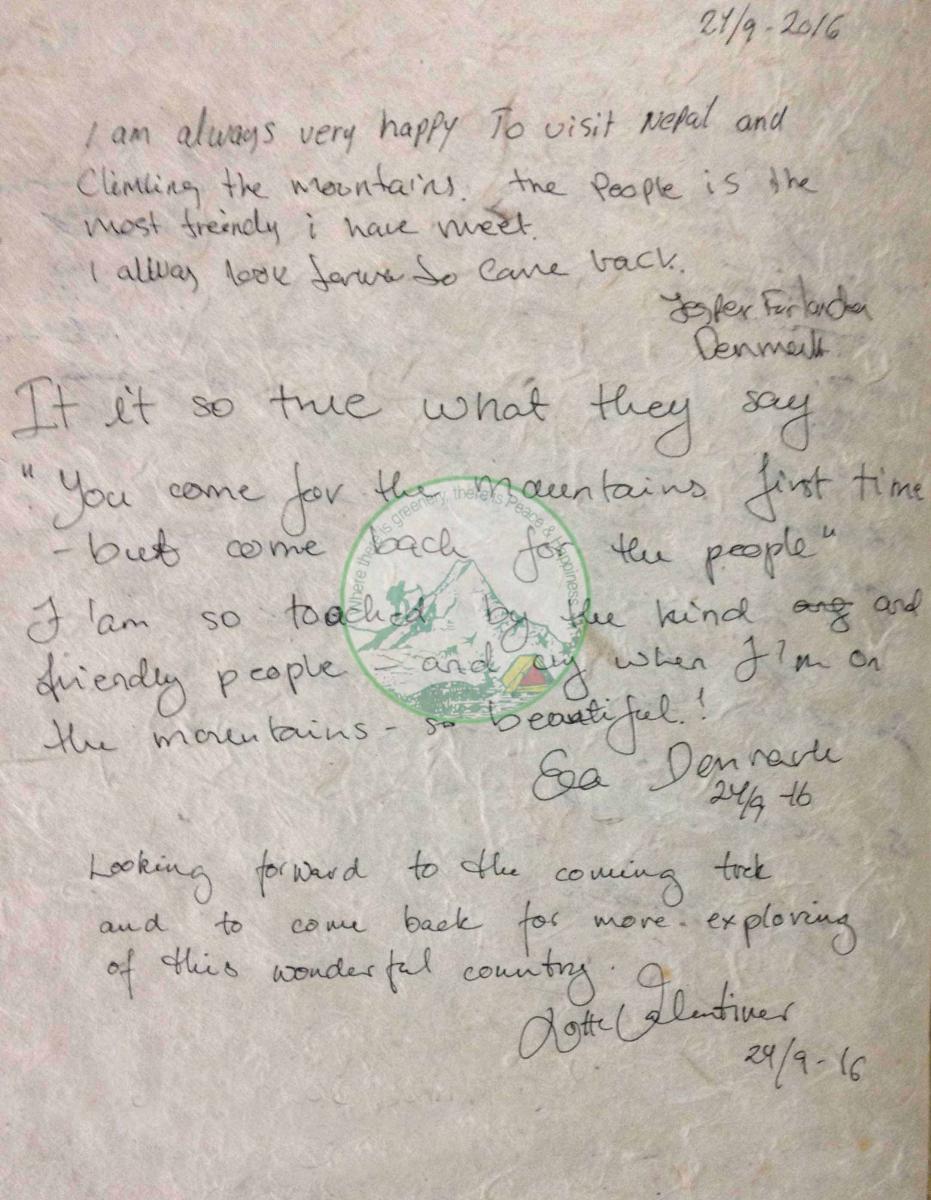 24/9-2016
I am always very happy To visit Nepal and
Climbing the mountains. the People is the
most freindy i have meet.
I allway look forwar to came back.
Jesper
Denmark
It it so true what they say
"You come for the mountains first time
- but come back for the people"
I'am so touched by the kind and
friendly people - and cry when I'm on
the mountains - so beautiful.!
Denmark
24/9-16
Looking forward to the coming trek
and to come back for more exploring
of this wonderful country.
Lotte Valentiner
24/9-16
Where there is greenery, there is Peace & Happiness